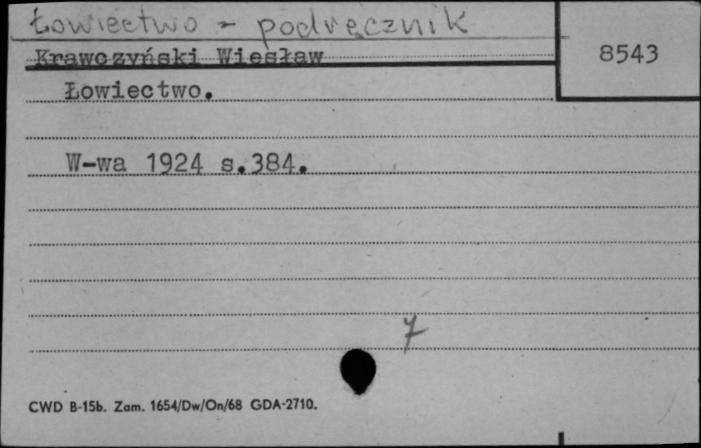 Łowiectwo - podręcznik
Krawczyński Wiesław
8543
Łowiectwo.
W-wa 1924 s.384.
7
CWD B-15b. Zam. 1654/Dw/On/68 GDA-2710.